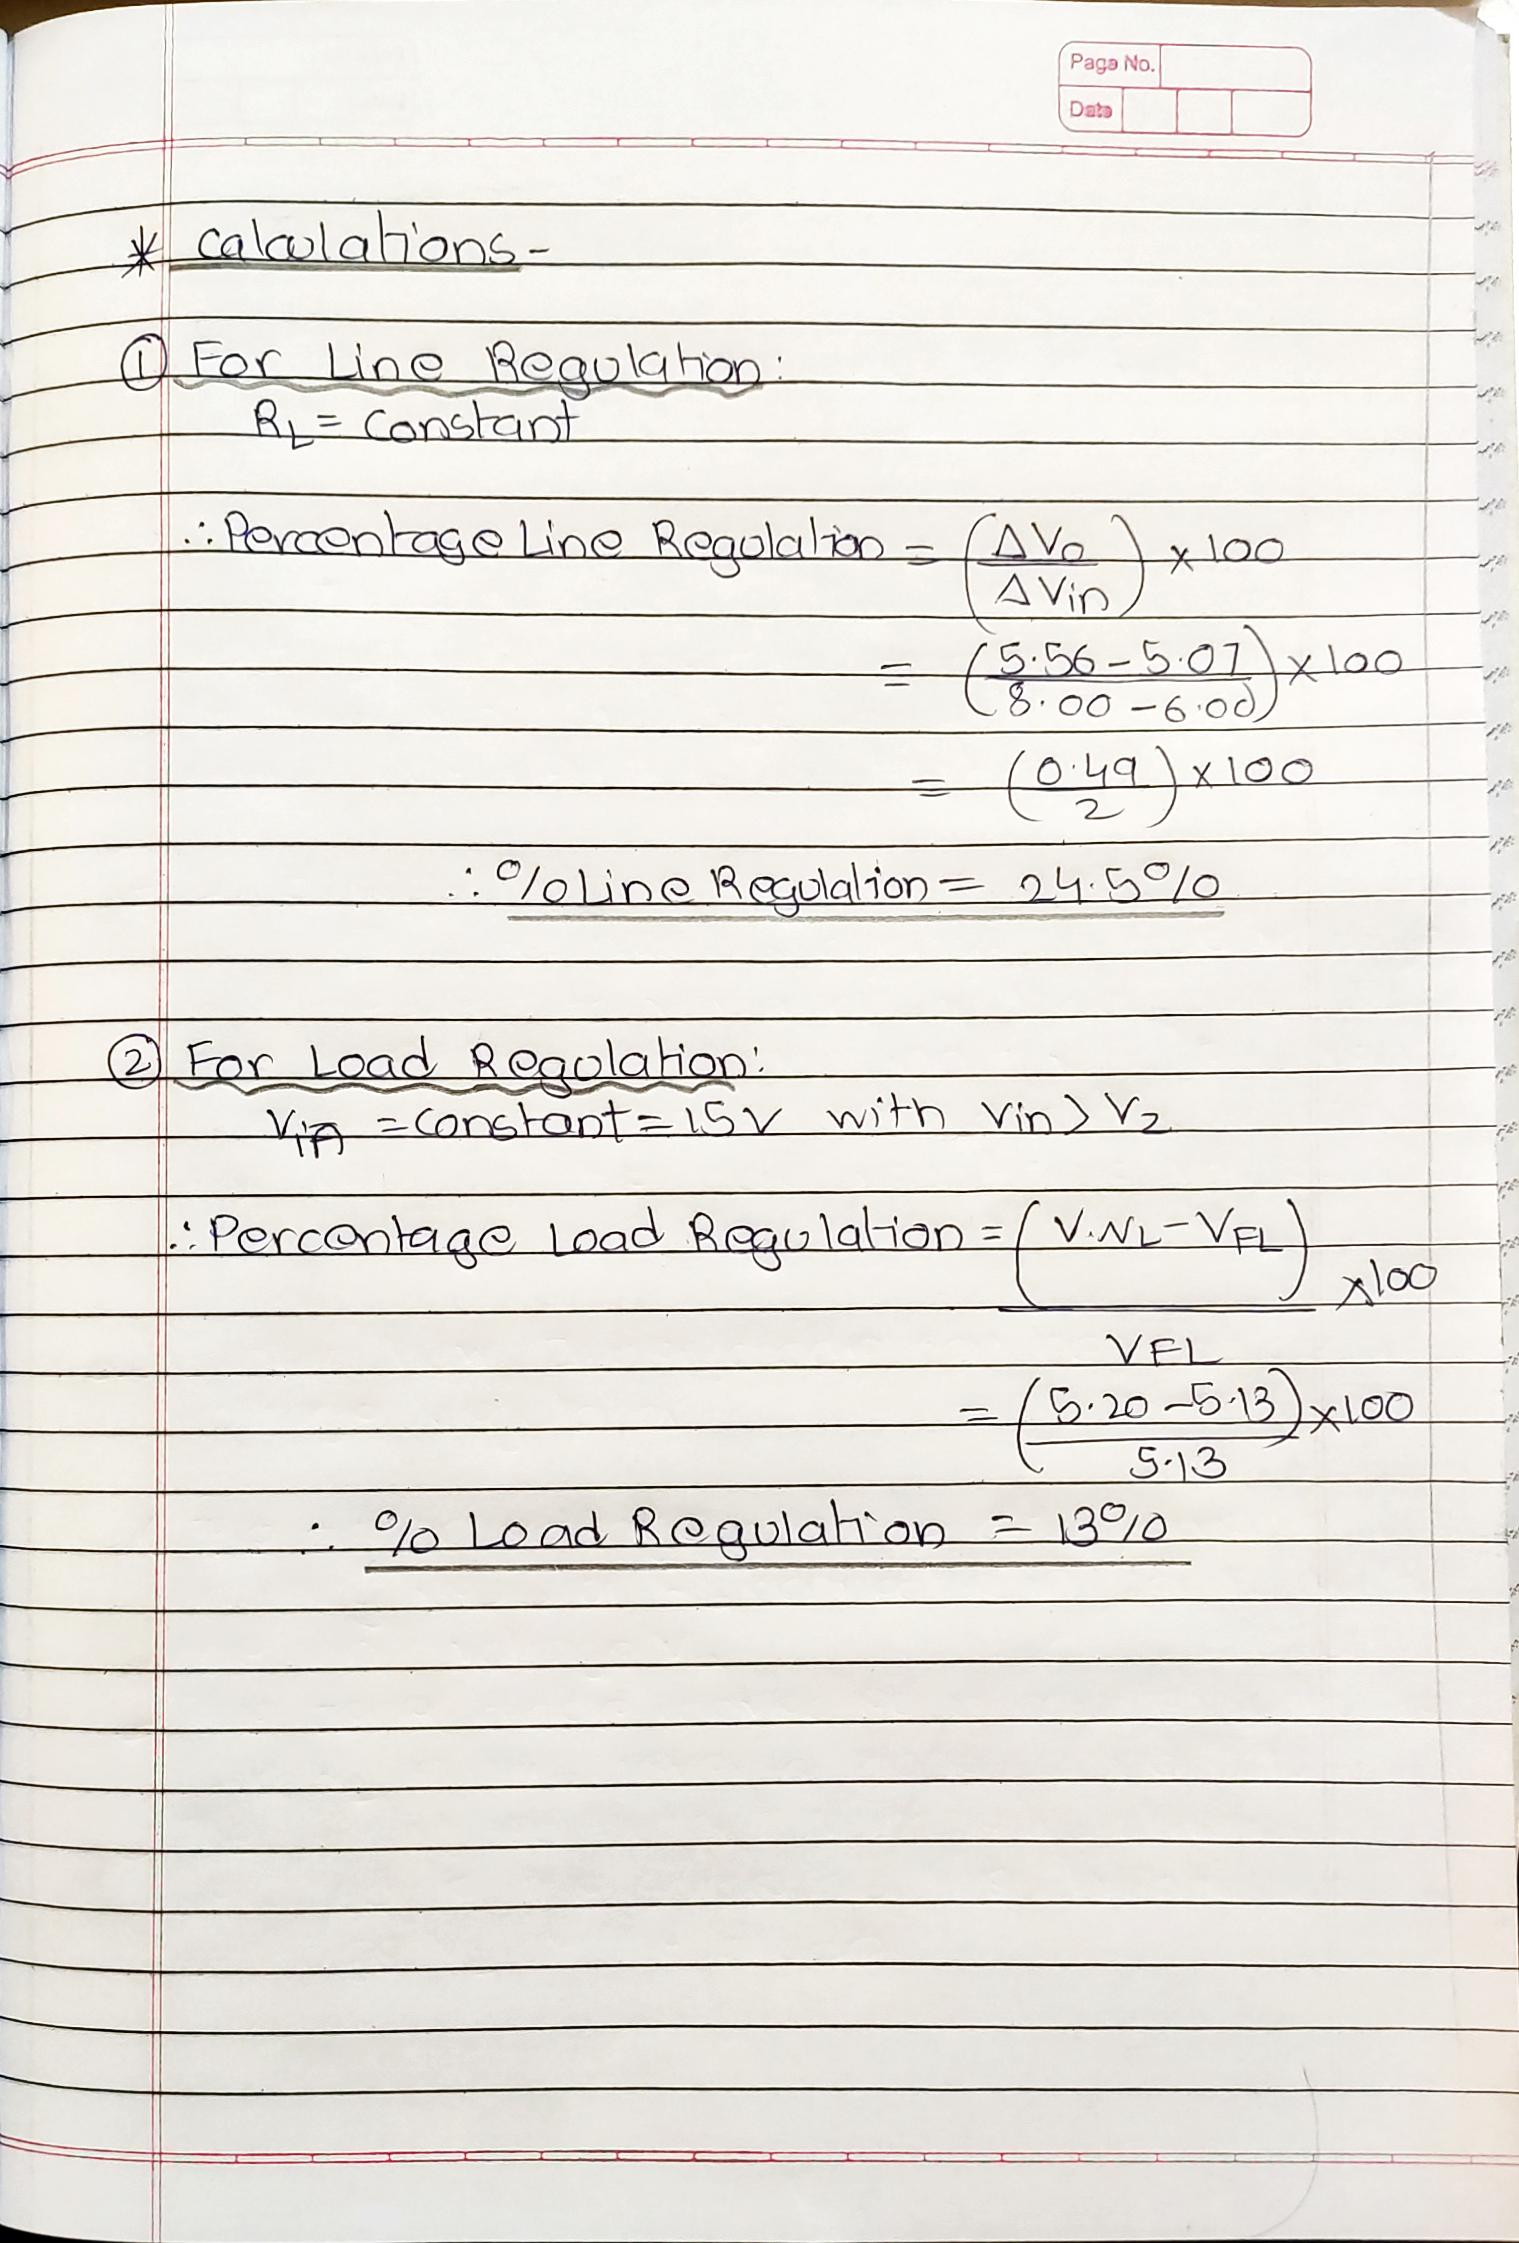 Page No.
Date
* Calculations -
① For Line Regulation:
RL = Constant
∴ Percentage Line Regulation = (ΔVo / ΔVin) × 100
= (5.56 - 5.07 / 8.00 - 6.00) × 100
= (0.49 / 2) × 100
∴ % Line Regulation = 24.5%
② For Load Regulation:
Vin = constant = 15V with Vin > Vz
∴ Percentage Load Regulation = (V.NL - VFL) / VFL × 100
= (5.20 - 5.13 / 5.13) × 100
∴ % Load Regulation = 13%